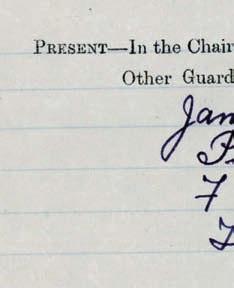 PRESENT—In the Chair
Other Guard
Jam
P
F